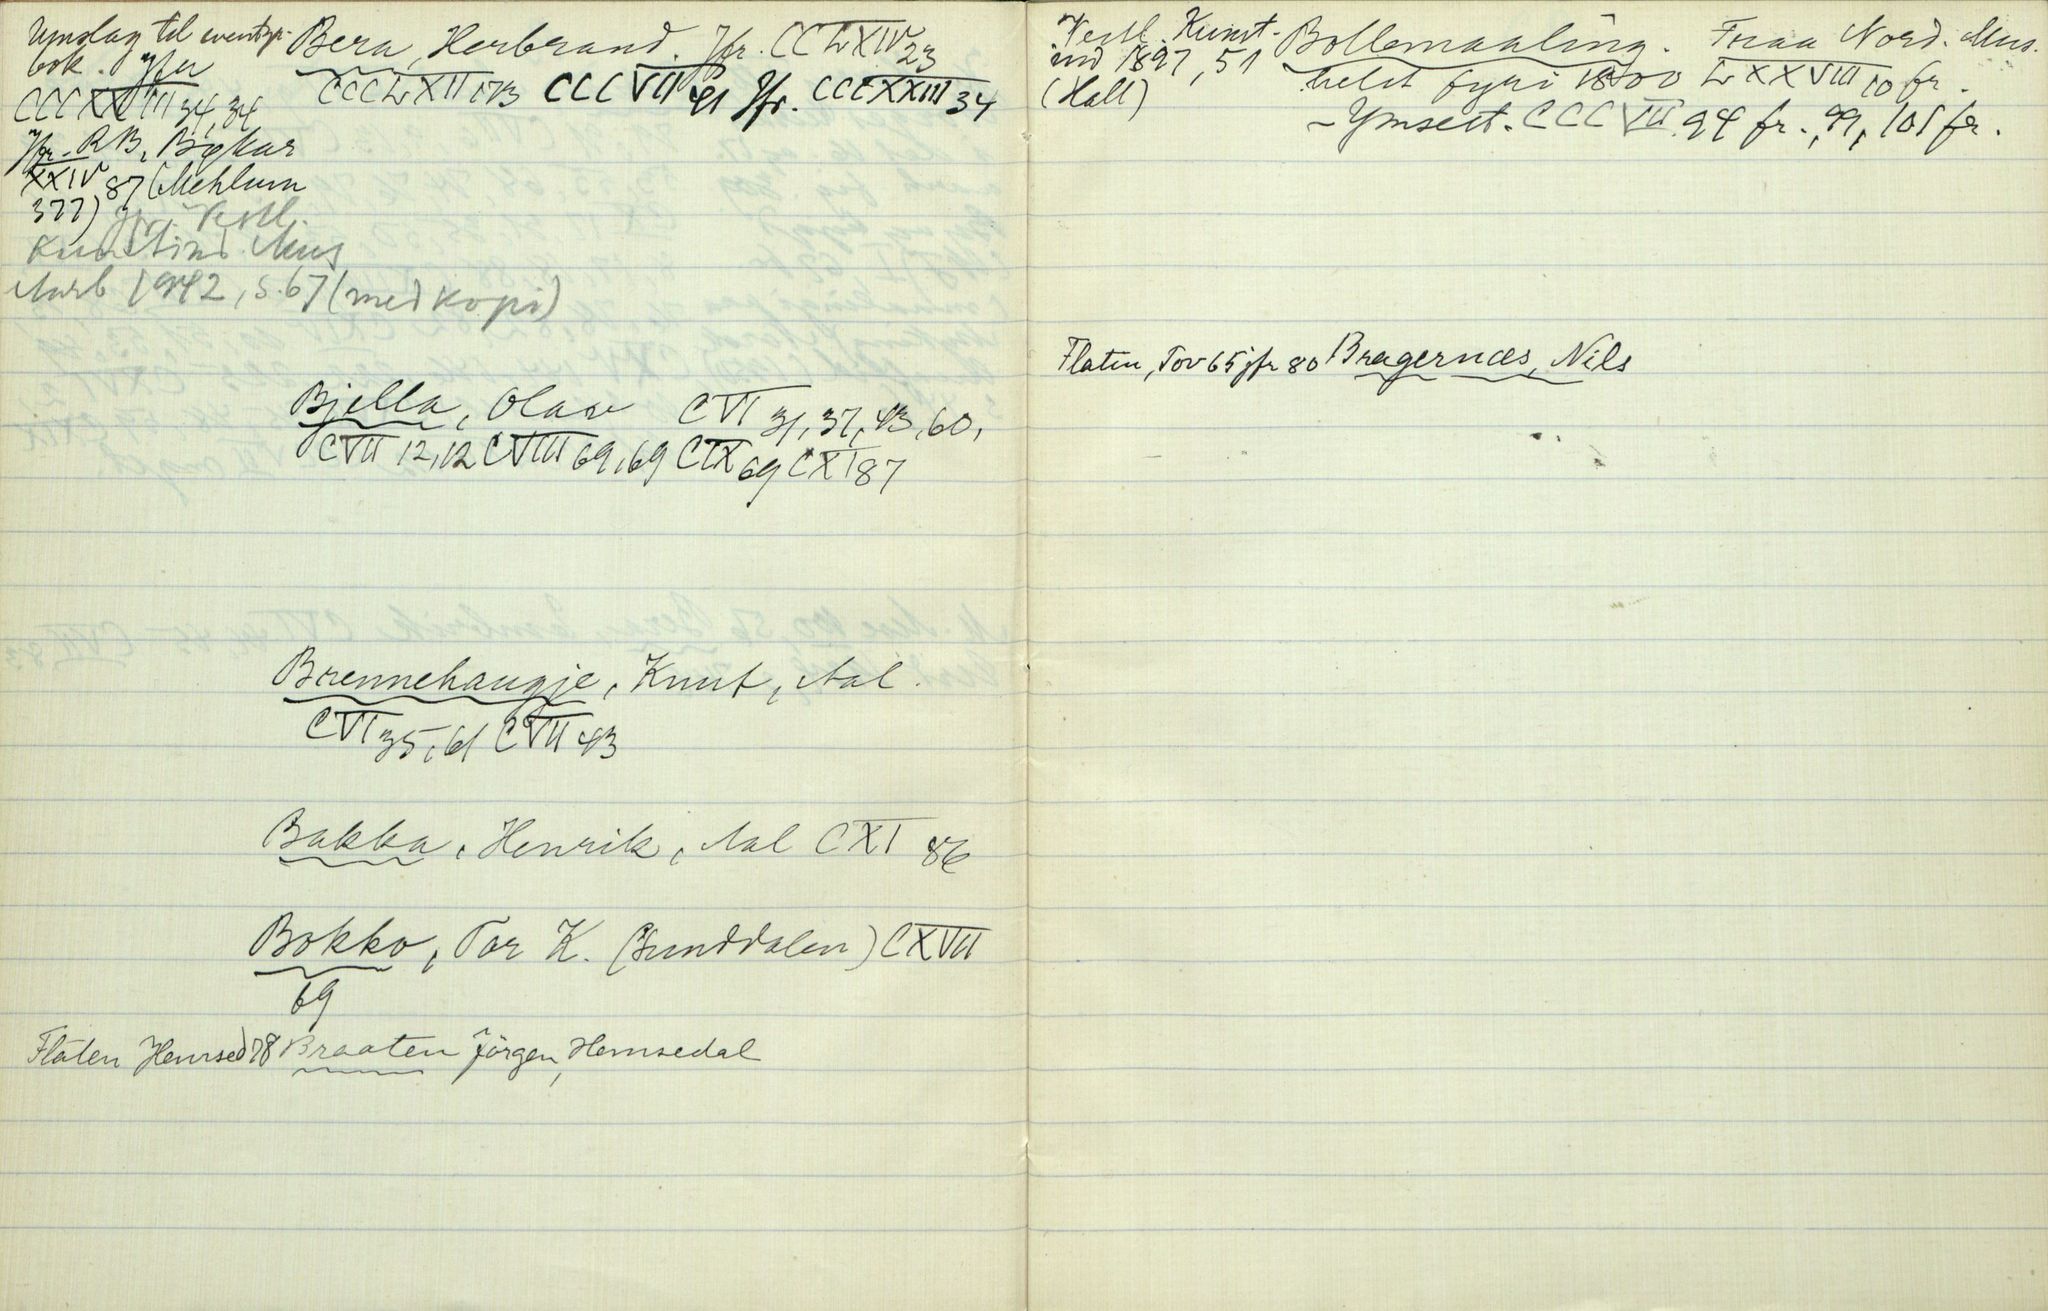 Umslag til eventyr-
bok. Jfr
CCCXXIII 34, 34
Jfr. RB, Bøkur
XXIV 87 (Mehlum
377) Jfr. Vestl.
Kunstind. Mus
Aarb 1942, s. 67 (med kopi)
Bera, Herbrand. Jfr. CCLXIV 23
CCCLXII 173 CCCVII 91 Jfr. CCCXXIII 34
Bjella, Olav CVI 31, 37, 43, 60,
CVII 12, 12 CVIII 69, 69 CIX 69 CXI 87
Brennehaugje, Knut, Aal.
CVI 35, 61 CVII 43
Bakka, Henrik, Aal CXI 86
Bokko, Tor K. (Sunddalen) CXVII
69
Flaten Hemsed 78 Braaten Jörgen, Hemsedal
Vestl. Kunst-
ind 1897, 51
(Hall)
Bollemaaling. Fraa Nord. Mus.
helst fyri 1800 LXXVIII 10 fr.
- Ymsest. CCCVII 94 fr., 99, 101 fr.
Flaten, Tov 65 jfr 80 Bragernæs, Nils